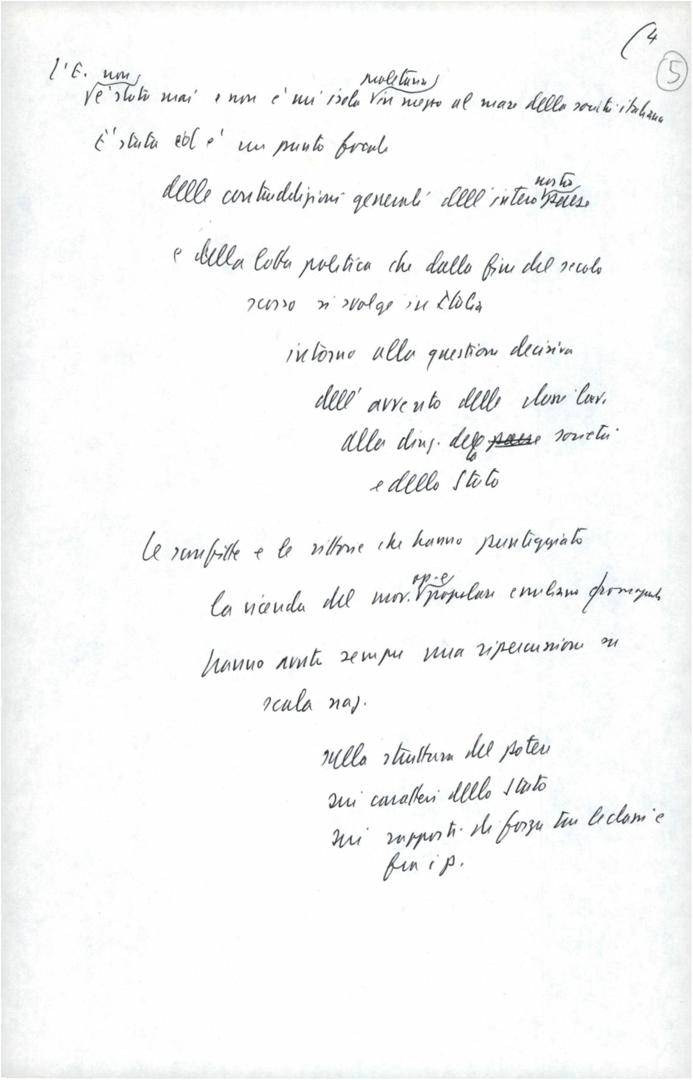 (4
5
l'E. non
proletaria
è stata mai e non è un'isola in mezzo al mare della società italiana
È stata ed è un punto focale
nostro
delle contraddizioni generali dell'intero paese
e della lotta politica che dalla fine del secolo
scorso si svolge in Italia
intorno alla questione decisiva
dell'avvento delle classi lav.
alla direz. della società
e dello Stato
Le sconfitte e le vittorie che hanno punteggiato
op. e
la vicenda del mov. popolare emiliano romagnolo
hanno avuto sempre una ripercussione su
scala naz.
sulla struttura del potere
sui caratteri dello Stato
sui rapporti di forza tra le classi e
fra i p.